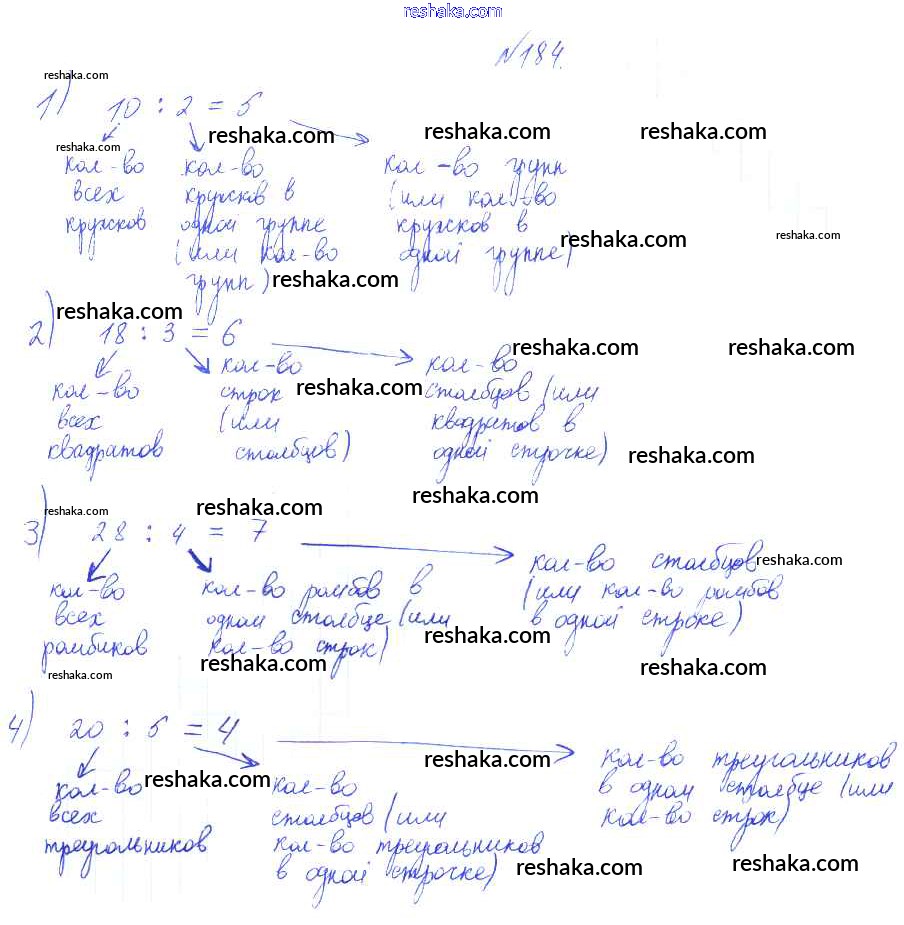 reshaka.com
№184.
reshaka.com
1) 10 : 2 = 5
reshaka.com reshaka.com reshaka.com
reshaka.com
кол-во кол-во кол-во групп
всех кружков в (или кол-во
кружков одной группе кружков в
reshaka.com reshaka.com
(или кол-во одной группе)
групп) reshaka.com
reshaka.com
2) 18 : 3 = 6
reshaka.com reshaka.com
кол-во кол-во
кол-во строк reshaka.com столбцов (или
всех (или квадратов в
квадратов столбцов) одной строчке) reshaka.com
reshaka.com
reshaka.com reshaka.com
3) 28 : 4 = 7
кол-во столбцов reshaka.com
кол-во кол-во ромбов в (или кол-во ромбов
всех одном столбце (или в одной строке)
reshaka.com
ромбиков кол-во строк)
reshaka.com reshaka.com reshaka.com
4) 20 : 5 = 4
reshaka.com кол-во треугольников
кол-во reshaka.com кол-во в одном столбце (или
всех столбцов (или reshaka.com кол-во строк)
треугольников кол-во треугольников
в одной строчке) reshaka.com reshaka.com